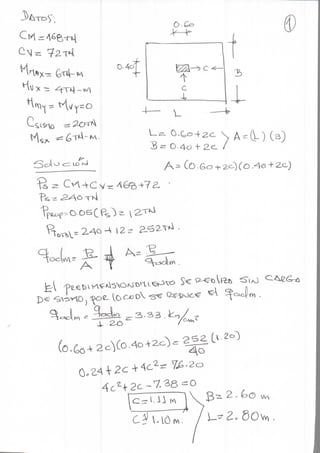 DATOS:
CM = 168 TN
CV = 72 TN
Mmx = 6 TN-M
Mvx = 4 TN-M
Mmy = Mvy = 0
Csismo = 20 TN
Msx = 6 TN-M.
①
0.60
0.40
C
C
B
L
L = 0.60 + 2c
B = 0.40 + 2c
A = (L)(B)
A = (0.60 + 2c)(0.40 + 2c)
Solución
Ps = CM + CV = 168 + 72
Ps = 240 TN
Ppeup = 0.05 (Ps) = 12 TN
Ptotal = 240 + 12 = 252 TN.
qadm = P/A A = P/qadm.
El PREDIMENSIONAMIENTO SE REALIZA SIN CARGA
DE SISMO, POR LO CUAL SE REDUCE El qadm.
qadm = qadm/1.20 = 3.33 kg/cm²
(0.60 + 2c)(0.40 + 2c) = 252/40 (1.20)
0.24 + 2c + 4c² = 76.20
4c² + 2c - 7.38 = 0
C = 1.11 M
C ≅ 1.10 m.
B = 2.60 m
L = 2.80 m.